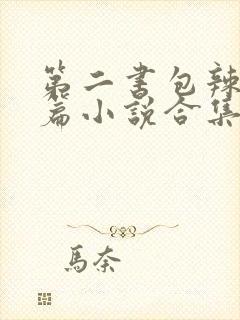 第二书包辣
篇小说合集
馬奈